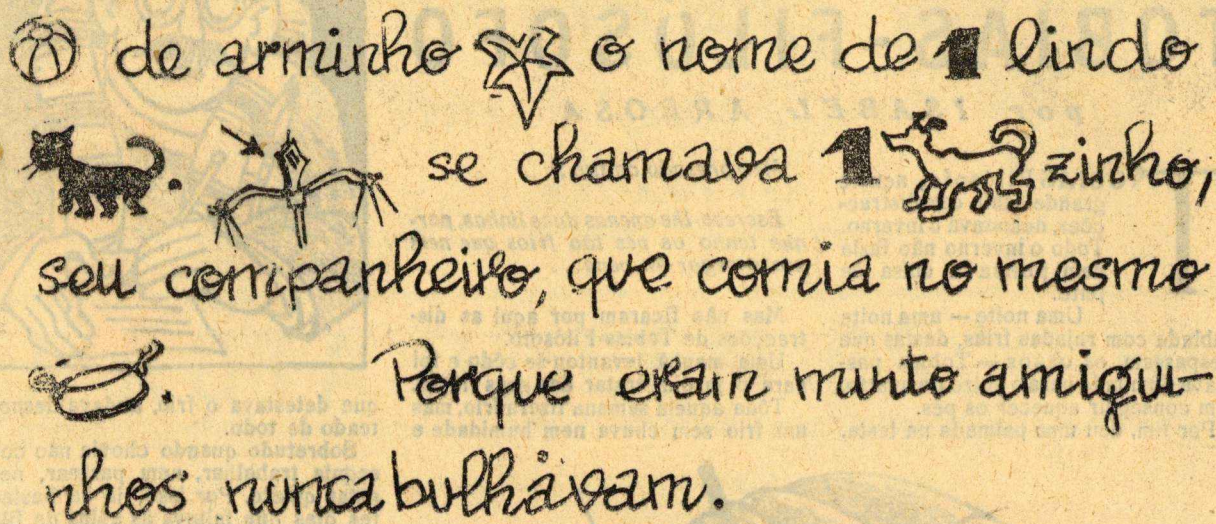 de arminho o nome de 1 lindo
. se chamava 1 zinho,
seu companheiro, que comia no mesmo
. Porque eram muito amigui-
nhos nunca bulhavam.